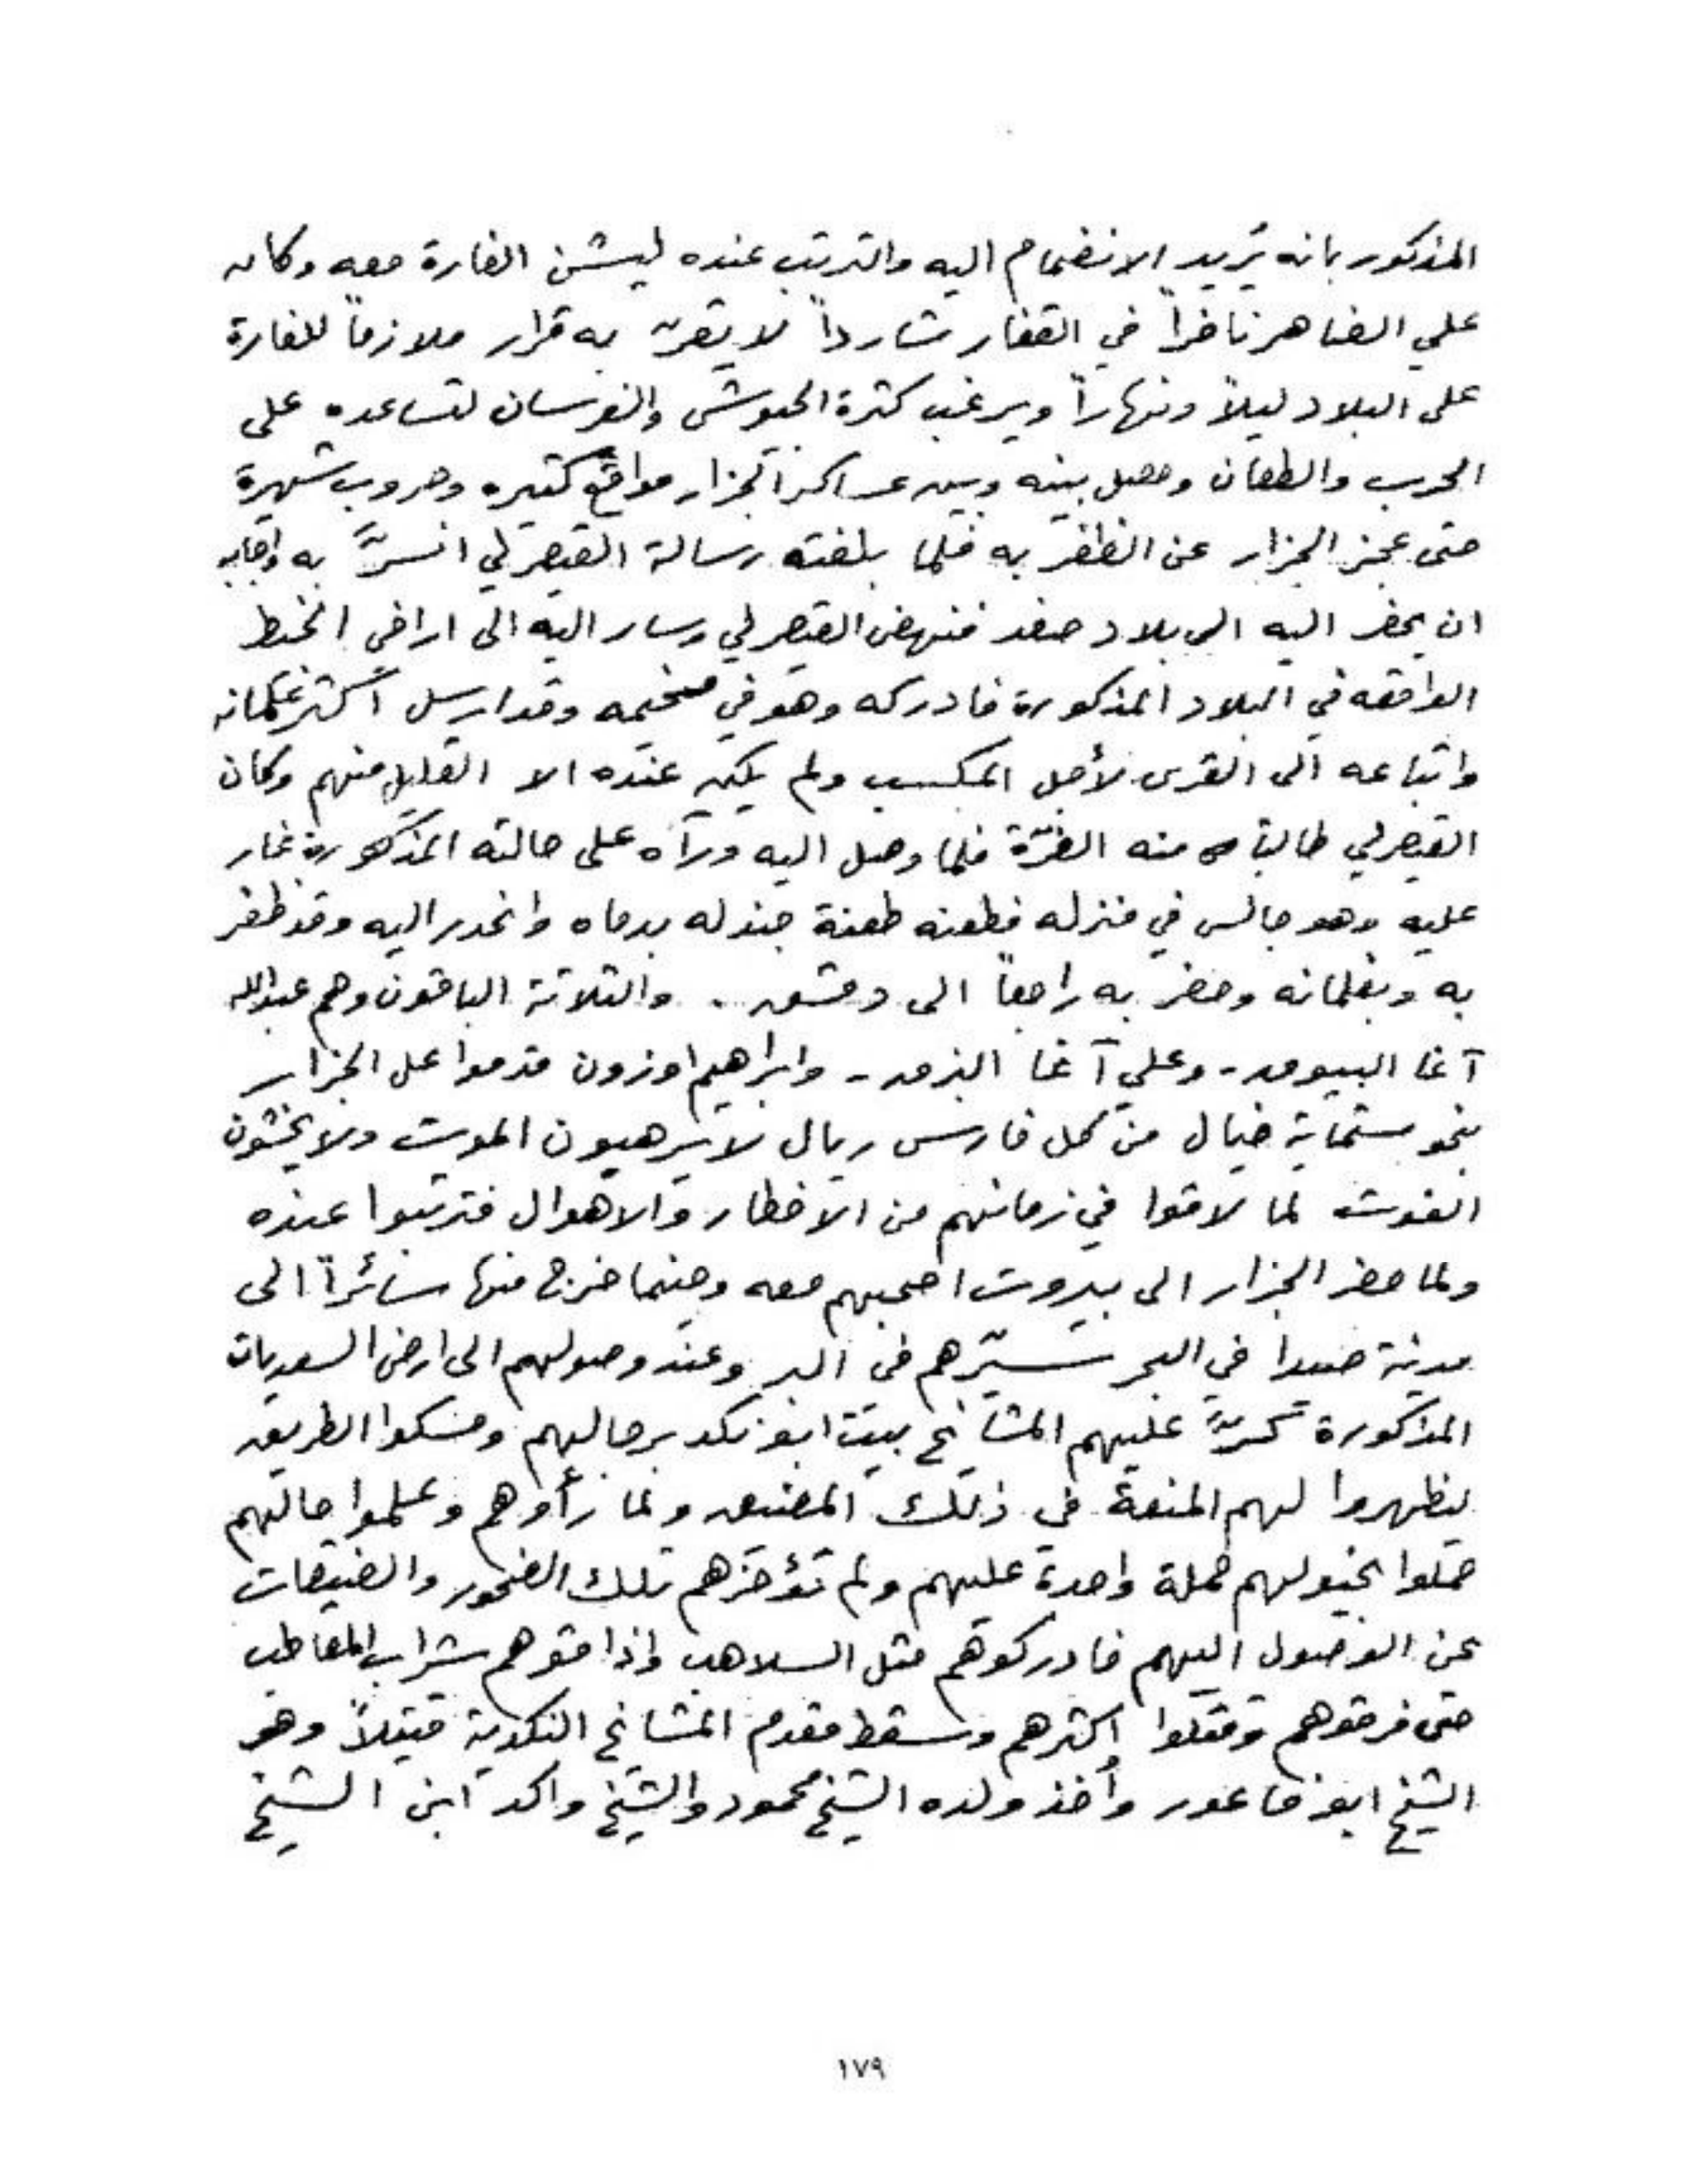 المذكور بانه يريد الانضمام اليه والترتب عنده ليشن الغارة معه وكان
علي الضاهر نافراً في القفار شارداً لا يقرّ به قرار ملازماً للغارة
على البلاد ليلاً ونهاراً ويرغب كثرة الجيوش والفرسان لتساعده على
الحرب والطعان وحصل بينه وبين عساكر الجزار مواقع كثيره وحروب شهيرة
حتى عجز الجزار عن الظفر به فلما بلغته رسالة القيصرلي انسرّ به واجابه
ان يحضر اليه الى بلاد صفد فنهض القيصرلي وسار اليه الى اراضي الخيط
الواقعه في البلاد المذكورة فادركه وهو في مخيمه وقد ارسل اكثر غلمانه
واتباعه الى القرى لأجل المكسب ولم يكن عنده الا القليل منهم وكان
القيصرلي طالباً منه الغرّة فلما وصل اليه ورآه على حالته المذكورة غار
عليه وهو جالس في منزله فطعنه طعنة جندله بدماه وانحدر اليه وقد ظفر
به وبغلمانه وحضر به راجعاً الى دمشق .. والثلاثة الباقون وهم عبدالله
آغا البيومي - وعلي آغا - وابراهيم اوزون قدموا على الجزار
بنحو ستماية خيال من كل فارس ريبال لا يرهبون الموت ولا يخشون
الفوت لما لاقوا في زمانهم من الاخطار والاهوال فترتبوا عنده
ولما حضر الجزار الى بيروت اصحبهم معه وحينما خرج منها سائراً الى
مدينة صيدا في البحر سيّرهم في البر وعند وصولهم الى ارض السعديات
المذكورة عليهم المشايخ بيت ابو نكد برجالهم ومسكوا الطريق
ليظهروا لهم المنعة في ذلك المضيق ولما رأوهم وعلموا حالهم
حملوا بخيولهم حملة واحدة عليهم ولم تؤخرهم تلك الصخور والضيقات
عن الوصول اليهم فادركوهم مثل السلاهب واذاقوهم شراب المعاطب
حتى فرقوهم وقتلوا اكثرهم وسقط مقدم المشايخ النكدية قتيلاً وهو
الشيخ ابو فاعور وأخذ ولده الشيخ محمود والشيخ واكد ابن الشيخ
١٧٩